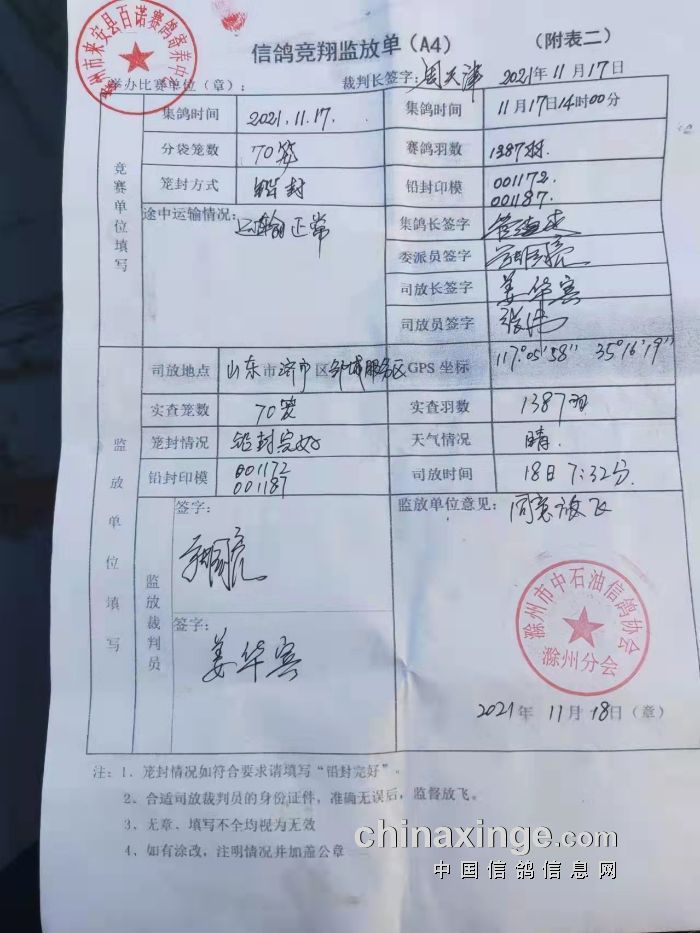 信鸽竞翔监放单（A4）
（附表二）
滁州市来安县百诺赛鸽寄养中心
举办比赛单位（章）：
裁判长签字：周天津 2021年11月17日
竞赛单位填写
集鸽时间 2021.11.17. 集鸽时间 11月17日14时00分
分袋笼数 70笼 赛鸽羽数 1387羽.
笼封方式 铅封 铅封印模 001172.
001187.
途中运输情况：运输正常 集鸽长签字
委派员签字
司放长签字 姜华宾
司放员签字 张伟
监放单位填写
司放地点 山东市济宁区邹城服务区 GPS坐标 117°05′58″ 35°16′19″
实查笼数 70笼 实查羽数 1387羽
笼封情况 铅封完好 天气情况 晴.
铅封印模 001172
001187 司放时间 18日7:32分.
监放裁判员
签字：
监放单位意见：同意放飞
签字：
姜华宾
滁州市中石油信鸽协会
滁州分会
2021年11月18日（章）
注：1、笼封情况如符合要求请填写“铅封完好”。
2、合适司放裁判员的身份证件，准确无误后，监督放飞。
3、无章、填写不全均视为无效
4、如有涂改，注明情况并加盖公章
chinaxinge.com
中国信鸽信息网